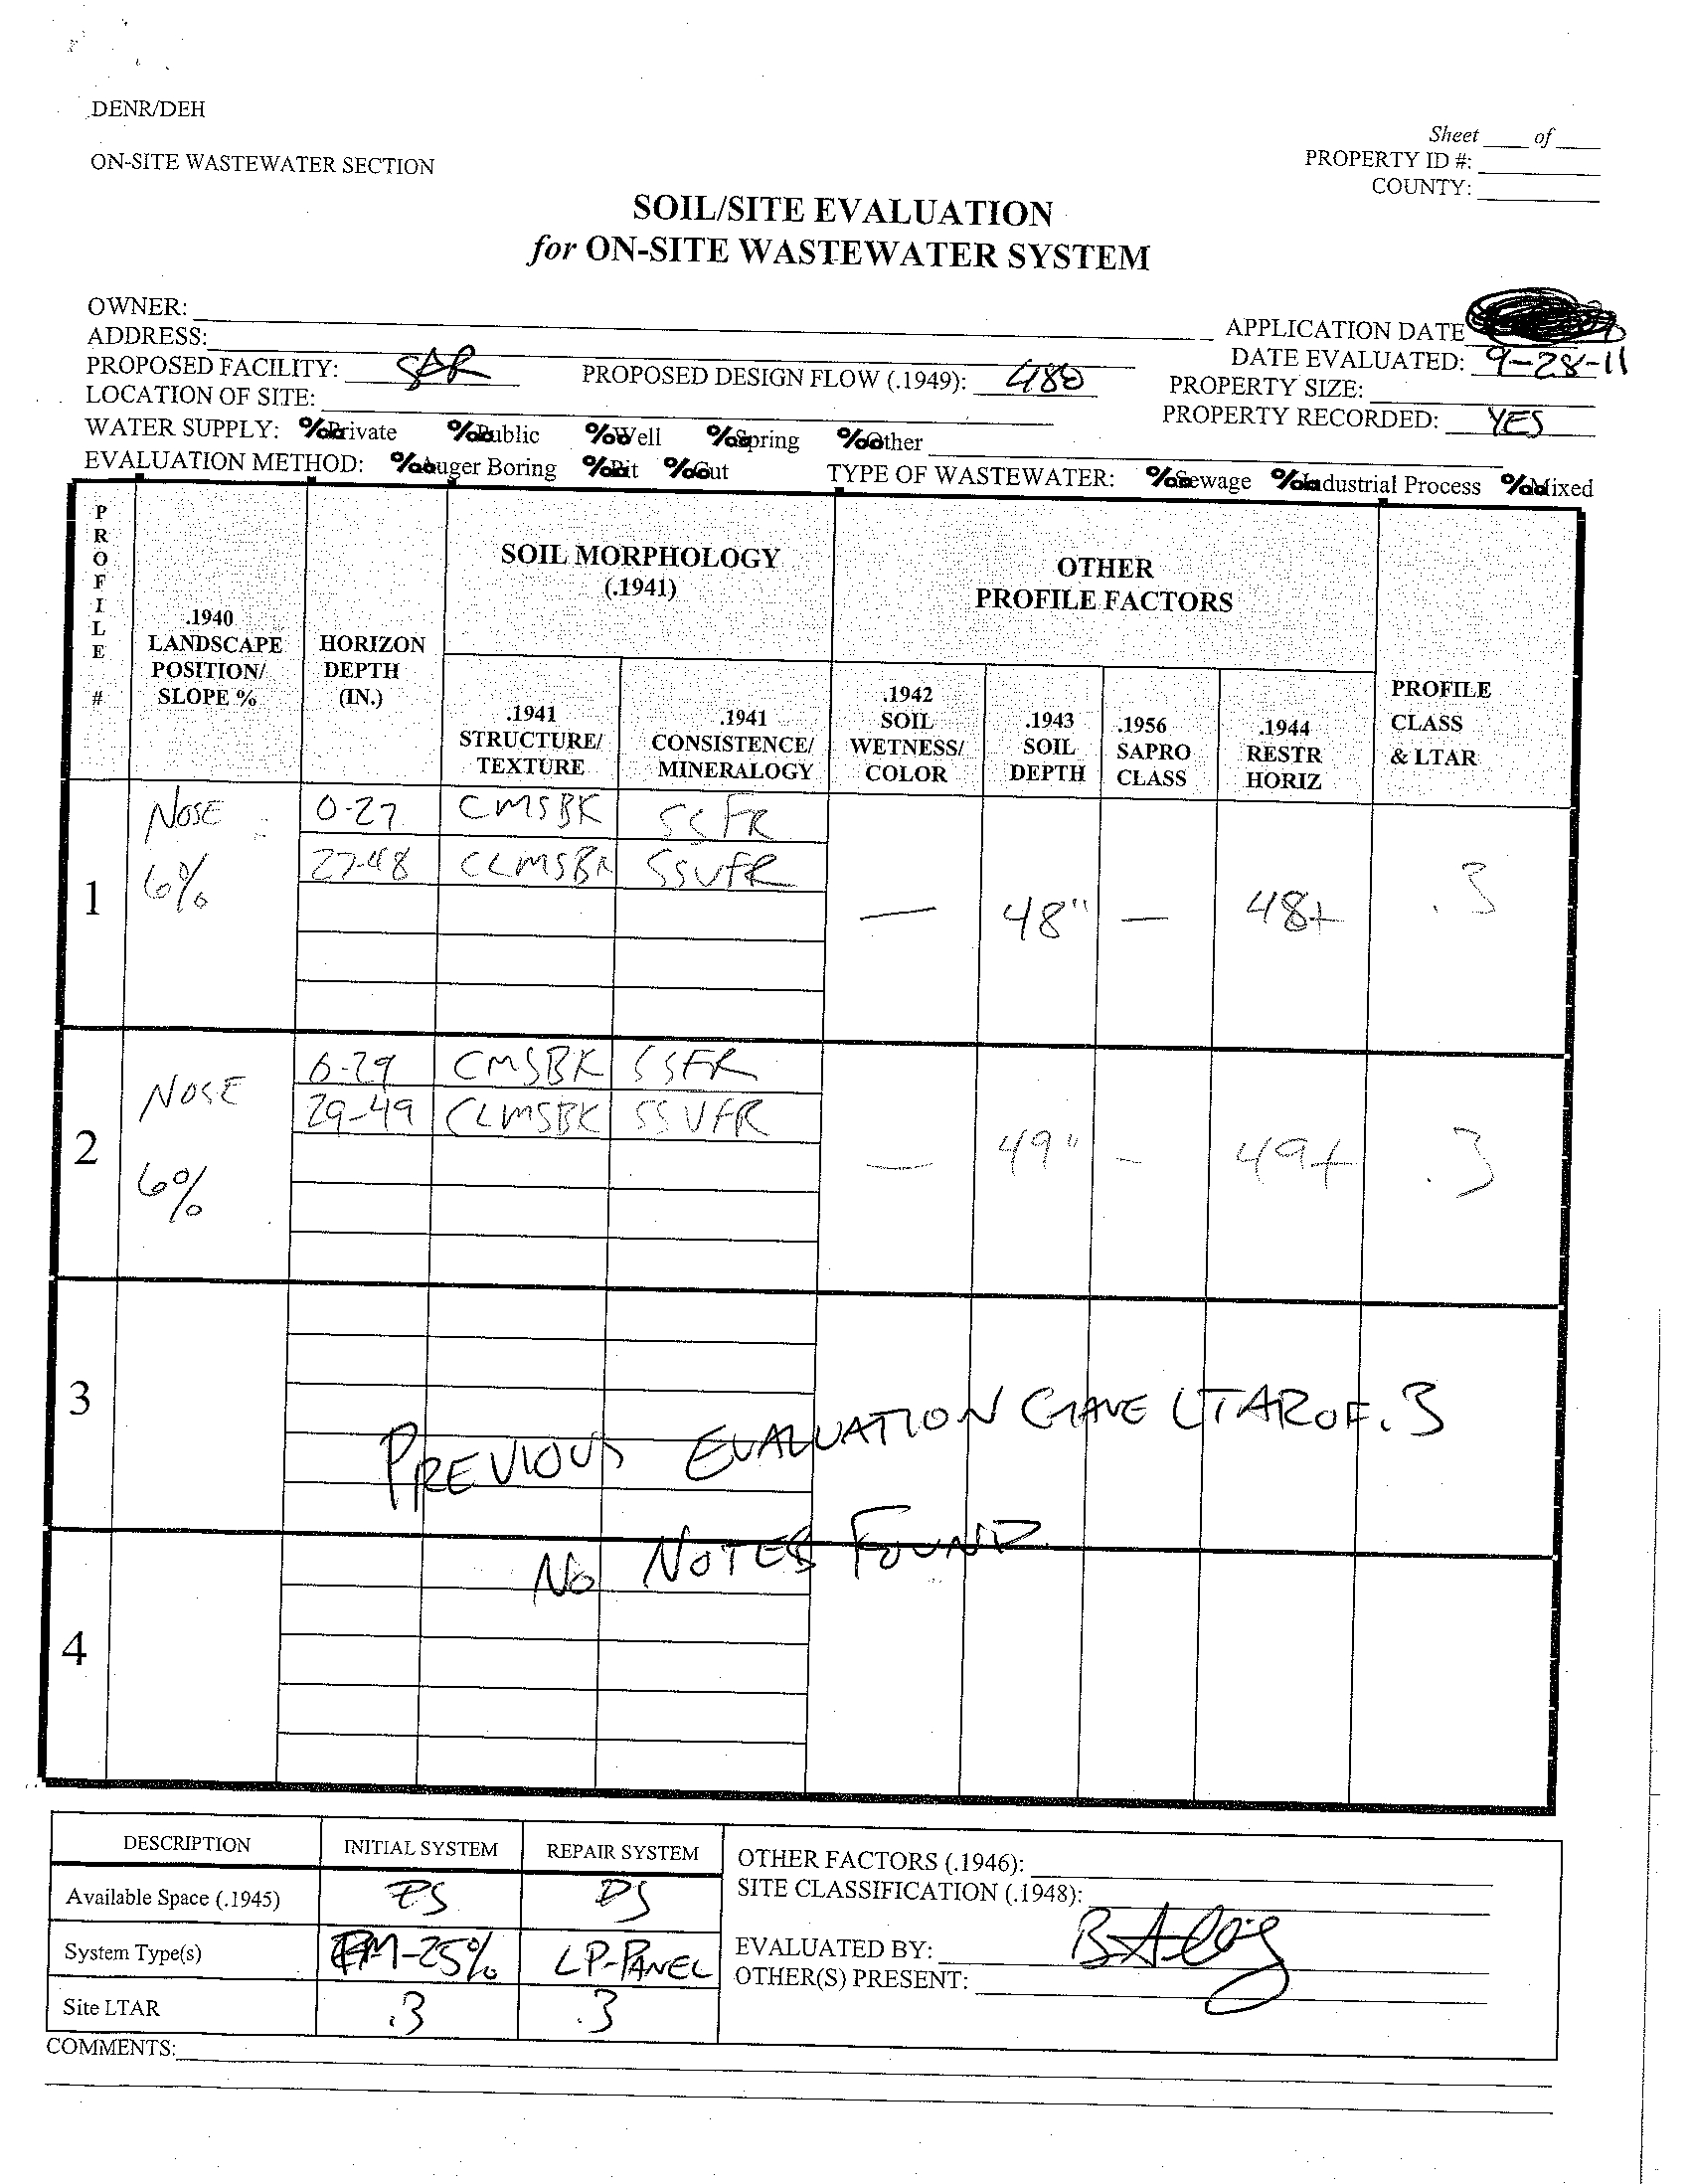 DENR/DEH
Sheet ____ of ____
ON-SITE WASTEWATER SECTION
PROPERTY ID #:
COUNTY:
SOIL/SITE EVALUATION
for ON-SITE WASTEWATER SYSTEM
OWNER:
ADDRESS:
APPLICATION DATE
PROPOSED FACILITY: PROPOSED DESIGN FLOW (.1949): 480
DATE EVALUATED: 9-28-11
LOCATION OF SITE:
PROPERTY SIZE:
PROPERTY RECORDED: YES
WATER SUPPLY: Private Public Well Spring Other
EVALUATION METHOD: Auger Boring Pit Cut TYPE OF WASTEWATER: Sewage Industrial Process Mixed
PROFILE #
.1940 LANDSCAPE POSITION/ SLOPE %
HORIZON DEPTH (IN.)
SOIL MORPHOLOGY (.1941)
.1941 STRUCTURE/ TEXTURE
.1941 CONSISTENCE/ MINERALOGY
OTHER PROFILE FACTORS
.1942 SOIL WETNESS/ COLOR
.1943 SOIL DEPTH
.1956 SAPRO CLASS
.1944 RESTR HORIZ
PROFILE CLASS & LTAR
1 NOSE 6%
0-27 CMSBK SSFR
27-48 CLMSBK SSVFR
— 48" — 48+ .3
2 NOSE 6%
0-29 CMSBK SSFR
29-49 CLMSBK SSVFR
— 49" — 49+ .3
3
PREVIOUS EVALUATION GAVE LTAR OF .3
NO NOTES FOUND
4
DESCRIPTION INITIAL SYSTEM REPAIR SYSTEM
Available Space (.1945) PS PS
System Type(s) -25% LP-PANEL
Site LTAR .3 .3
OTHER FACTORS (.1946):
SITE CLASSIFICATION (.1948):
EVALUATED BY:
OTHER(S) PRESENT:
COMMENTS: